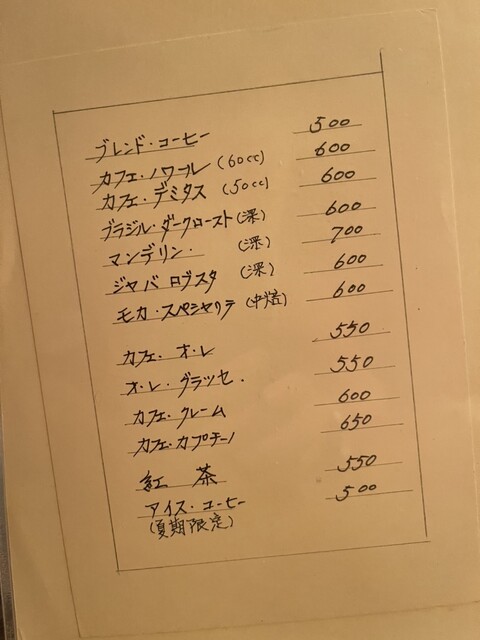 ブレンド・コーヒー 500
カフェ・ノワール (60cc) 600
カフェ・デミタス (50cc) 600
ブラジル・ダークロースト (深) 600
マンデリン・ (深) 700
ジャバ ロブスタ (深) 600
モカ・スペシャリテ (中焙) 600
カフェ・オ・レ 550
オ・レ・グラッセ・ 550
カフェ・クレーム 600
カフェ・カプチーノ 650
紅 茶 550
アイス・コーヒー 500
(夏期限定)